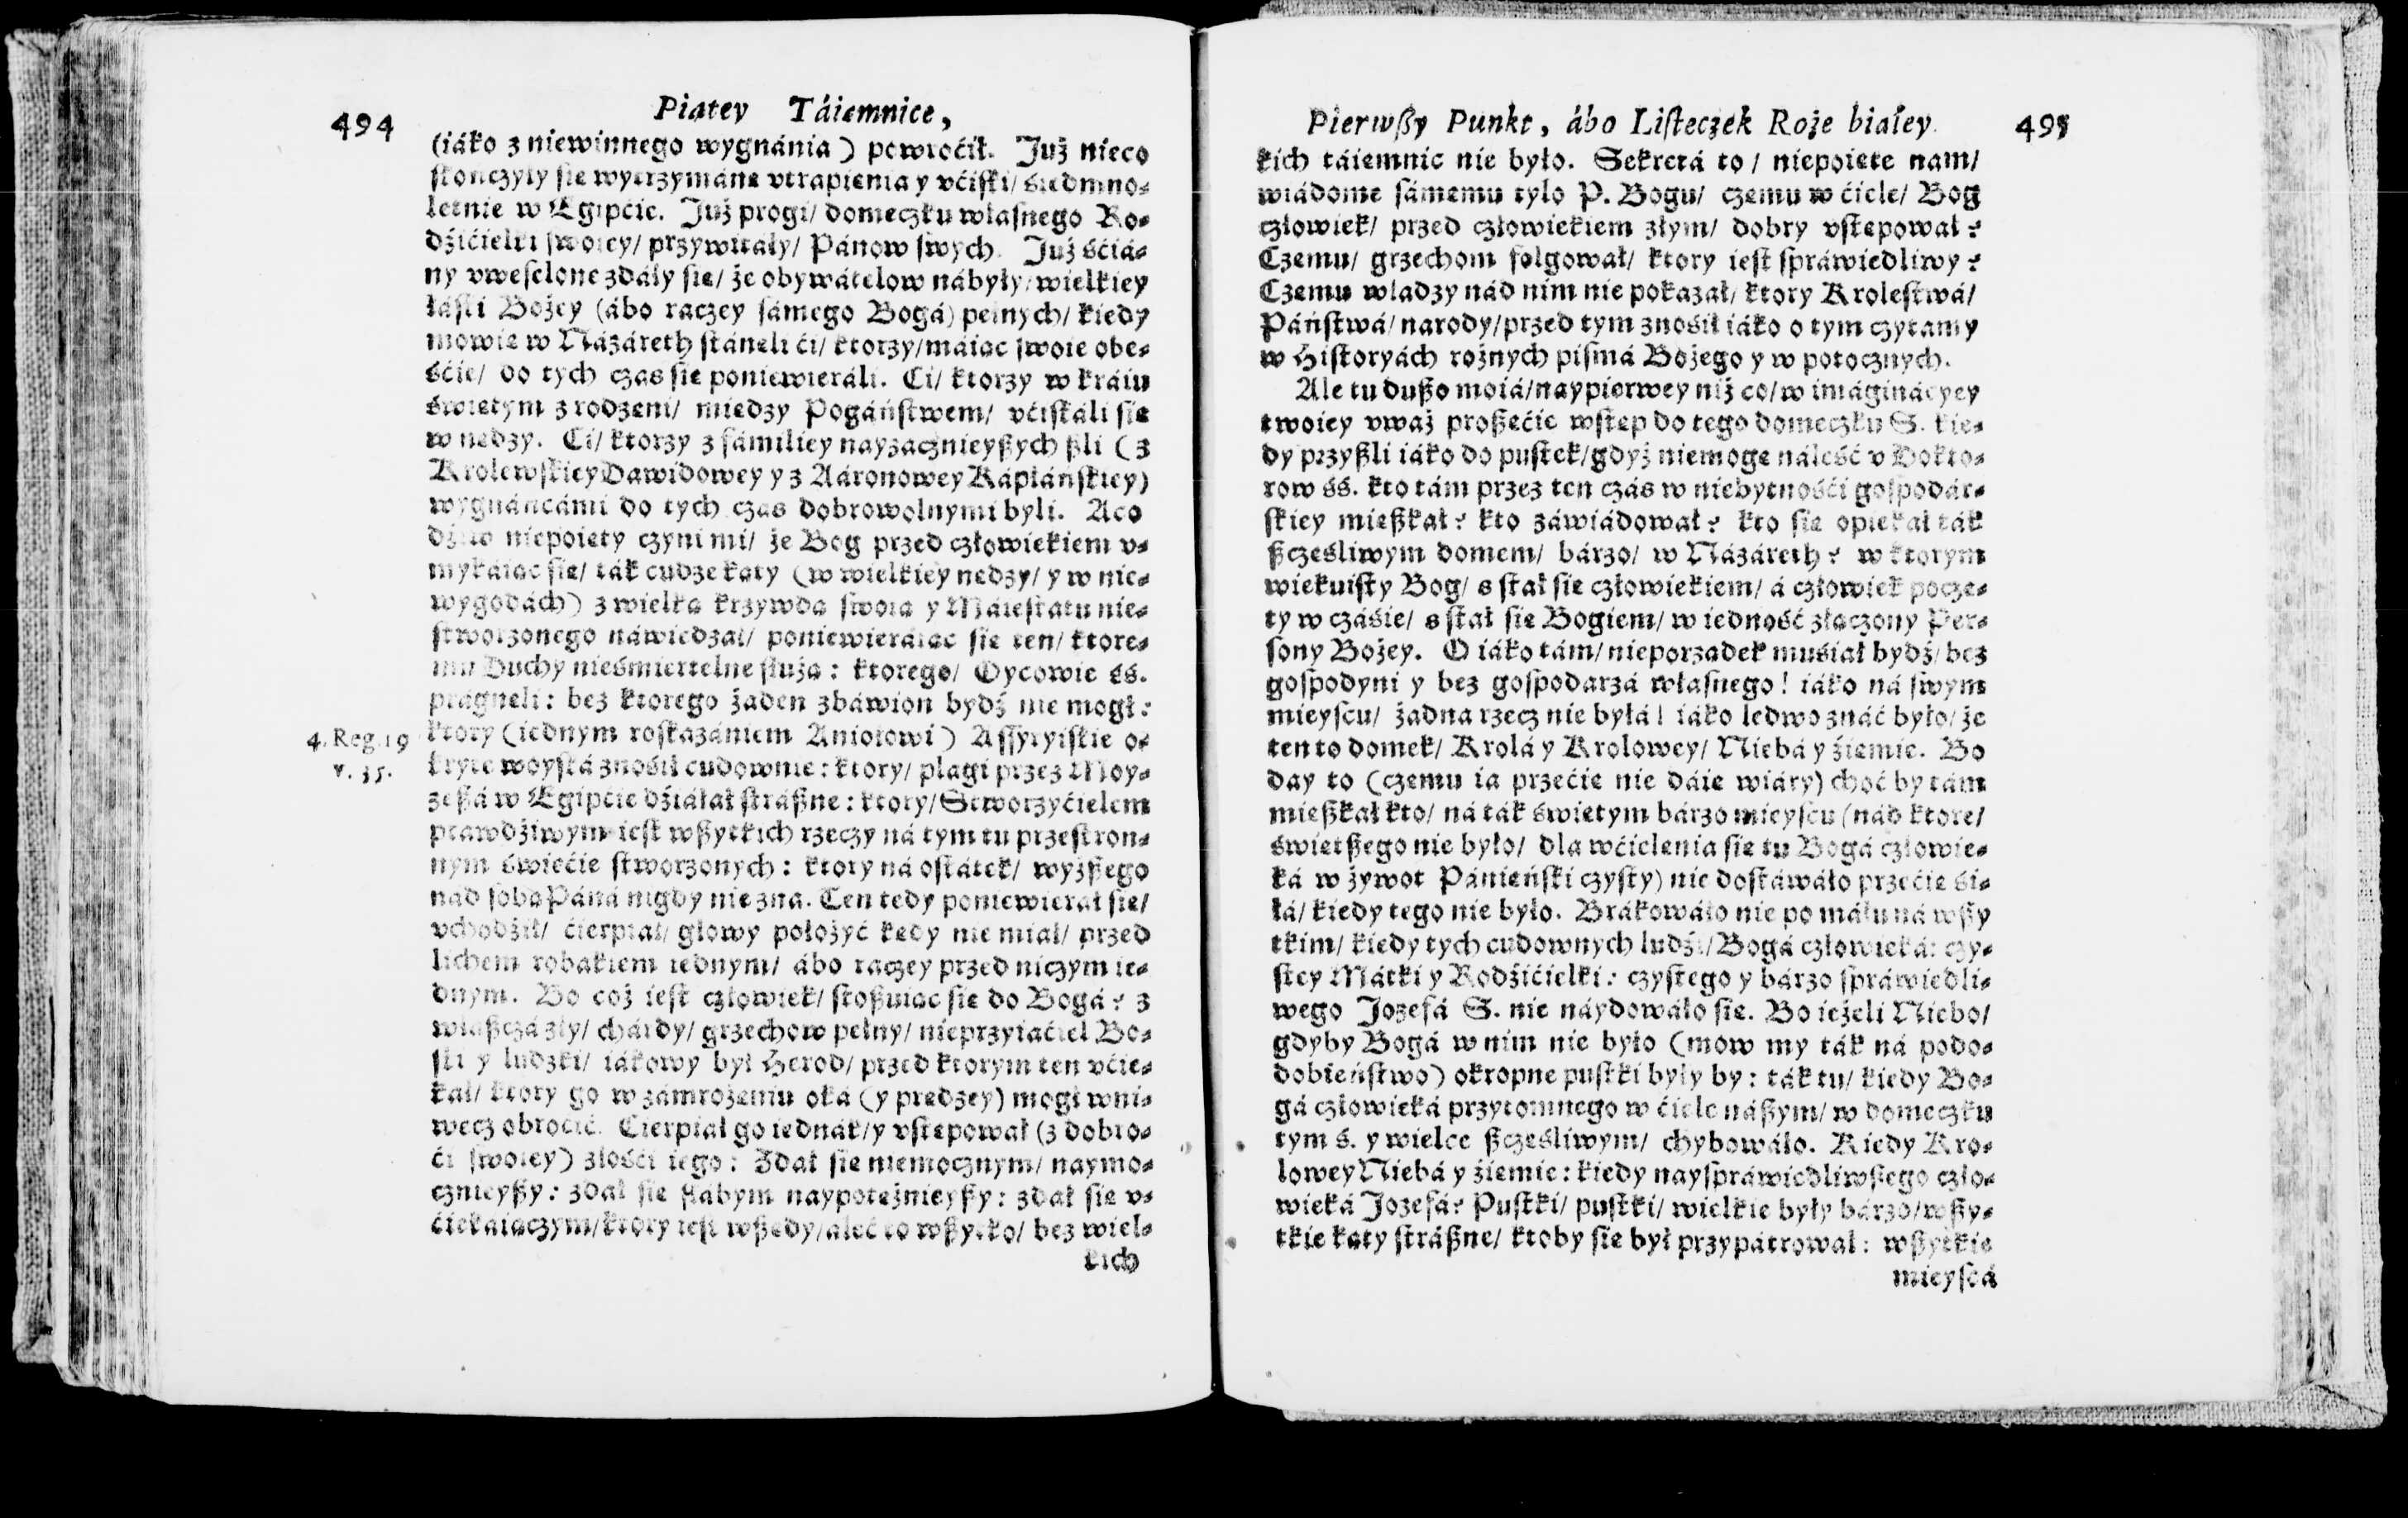 494
Piątey Táiemnice,
(iáko z niewinnego wygnánia) powroćił. Już nieco
skończyły się wytrzymáne vtrapienia y vćiski/ śiedmno-
letnie w Egipćie. Już progi/ domeczku własnego Ro-
dźićielki swoiey/ przywitały/ Pánow swych. Już śćiá-
ny vweselone zdały się/ że obywátelow nábyły/ wielkiey
łáski Bożey (ábo raczey sámego Bogá) pełnych/ kiedy
mowię w Názáreth stánęli ći/ ktorzy/ máiąc swoie obe-
śćie/ do tych czas się poniewieráli. Ci/ ktorzy w kráiu
świętym zrodzeni/ między Pogáństwem/ vćiskáli się
w nędzy. Ci/ ktorzy z fámiliey nayzacznieyßych ßli (z
Krolewskiey Dawidowey y z Aáronowey Káplánskiey)
wygnáncámi do tych czas dobrowolnymi byli. A co
dźiw niepoięty czyni mi/ że Bog przed człowiekiem v-
mykáiąc się/ ták cudze kąty (w wielkiey nędzy/ y w nie-
wygodách) z wielką krzywdą swoią y Máiestatu nie-
stworzonego náwiedzał/ poniewieráiąc się ten/ ktore-
mu Duchy nieśmiertelne służą: ktorego/ Oycowie śś.
prágnęli: bez ktorego żaden zbáwion bydź nie mogł:
ktory (iednym roskazániem Aniołowi) Assyryiskie o-
4. Reg. 19
v. 35.
kryte woyská znosił cudownie: ktory/ plagi przez Moy-
zeßá w Egipćie dźiáłał stráßne: ktory/ Stworzyćielem
prawdźiwym iest wßytkich rzeczy ná tym tu przestron-
nym świećie stworzonych: ktory ná ostátek/ wyżßego
nad sobą Páná nigdy nie zna. Ten tedy poniewierał się/
vchodźił/ ćierpiał/ głowy położyć kędy nie miał/ przed
lichem robakiem iednym/ ábo raczey przed niczym ie-
dnym. Bo coż iest człowiek/ stoßuiąc się do Bogá? z
właßczá zły/ chárdy/ grzechow pełny/ nieprzyiaćiel Bo-
ski y ludzki/ iákowy był Herod/ przed ktorym ten vćie-
kał/ ktory go w zámrożeniu oká (y prędzey) mogł wni-
wecz obroćić. Cierpiał go iednák/ y vstępował (z dobro-
ći swoiey) złośći iego: Zdał się niemocznym/ naymo-
cznieyßy: zdał się słabym naypotężnieyßy: zdał się v-
ćiekáiączym/ ktory iest wßędy/ áleć to wßytko/ bez wiel-
kich
Pierwßy Punkt, ábo Listeczek Roże białey.
495
kich táiemnic nie było. Sekretá to/ niepoięte nam/
wiádome sámemu tylo P. Bogu/ czemu w ćiele/ Bog
człowiek/ przed człowiekiem złym/ dobry vstępował?
Czemu/ grzechom folgował/ ktory iest spráwiedliwy?
Czemu władzy nád nim nie pokazał/ ktory Krolestwá/
Páństwá/ narody/ przed tym znosił iáko o tym czytamy
w Historyách rożnych pismá Bożego y w potocznych.
Ale tu dußo moiá/ naypierwey niż co/ w imáginácyey
twoiey vważ proßęćie wstęp do tego domeczku S. kie-
dy przyßli iáko do pustek/ gdyż niemogę náleść v Dokto-
row śś. kto tám przez ten czás w niebytnośći gospodár-
skiey mießkał? kto záwiádował? kto się opiekał ták
ßczęśliwym domem/ bárzo/ w Názáreth? w ktorym
wiekuisty Bog/ sstał się człowiekiem/ á człowiek poczę-
ty w czáśie/ sstał się Bogiem/ w iedność złączony Per-
sony Bożey. O iáko tám/ nieporządek musiał bydź/ bez
gospodyni y bez gospodarzá własnego! iáko ná swym
mieyscu/ żadna rzecz nie byłá! iáko ledwo znáć było/ że
ten to domek/ Krolá y Krolowey/ Niebá y źiemie. Bo
day to (czemu ia przećie nie dáię wiáry) choć by tám
mießkał kto/ ná ták świętym bárzo mieyscu (nád ktore/
świętßego nie było/ dla wćielenia się tu Bogá człowie-
ká w żywot Pánieński czysty) nie dostáwáło przećie śi-
łá/ kiedy tego nie było. Brákowáło nie po máłu ná wßy
tkim/ kiedy tych cudownych ludźi/ Bogá człowieká: czy-
stey Mátki y Rodźićielki: czystego y bárzo spráwiedli-
wego Jozefá S. nie náydowáło się. Bo ieżeli Niebo/
gdyby Bogá w nim nie było (mow my ták ná podo-
dobieństwo) okropne pustki były by: ták tu/ kiedy Bo-
gá człowieká przytomnego w ćiele náßym/ w domeczku
tym ś. y wielce ßczęśliwym/ chybowáło. Kiedy Kro-
lowey Niebá y źiemie: kiedy nayspráwiedliwßego czło-
wieká Jozefá? Pustki/ pustki/ wielkie były bárzo/ wßy-
tkie kąty stráßne/ ktoby się był przypátrował: wßytkie
mieyscá